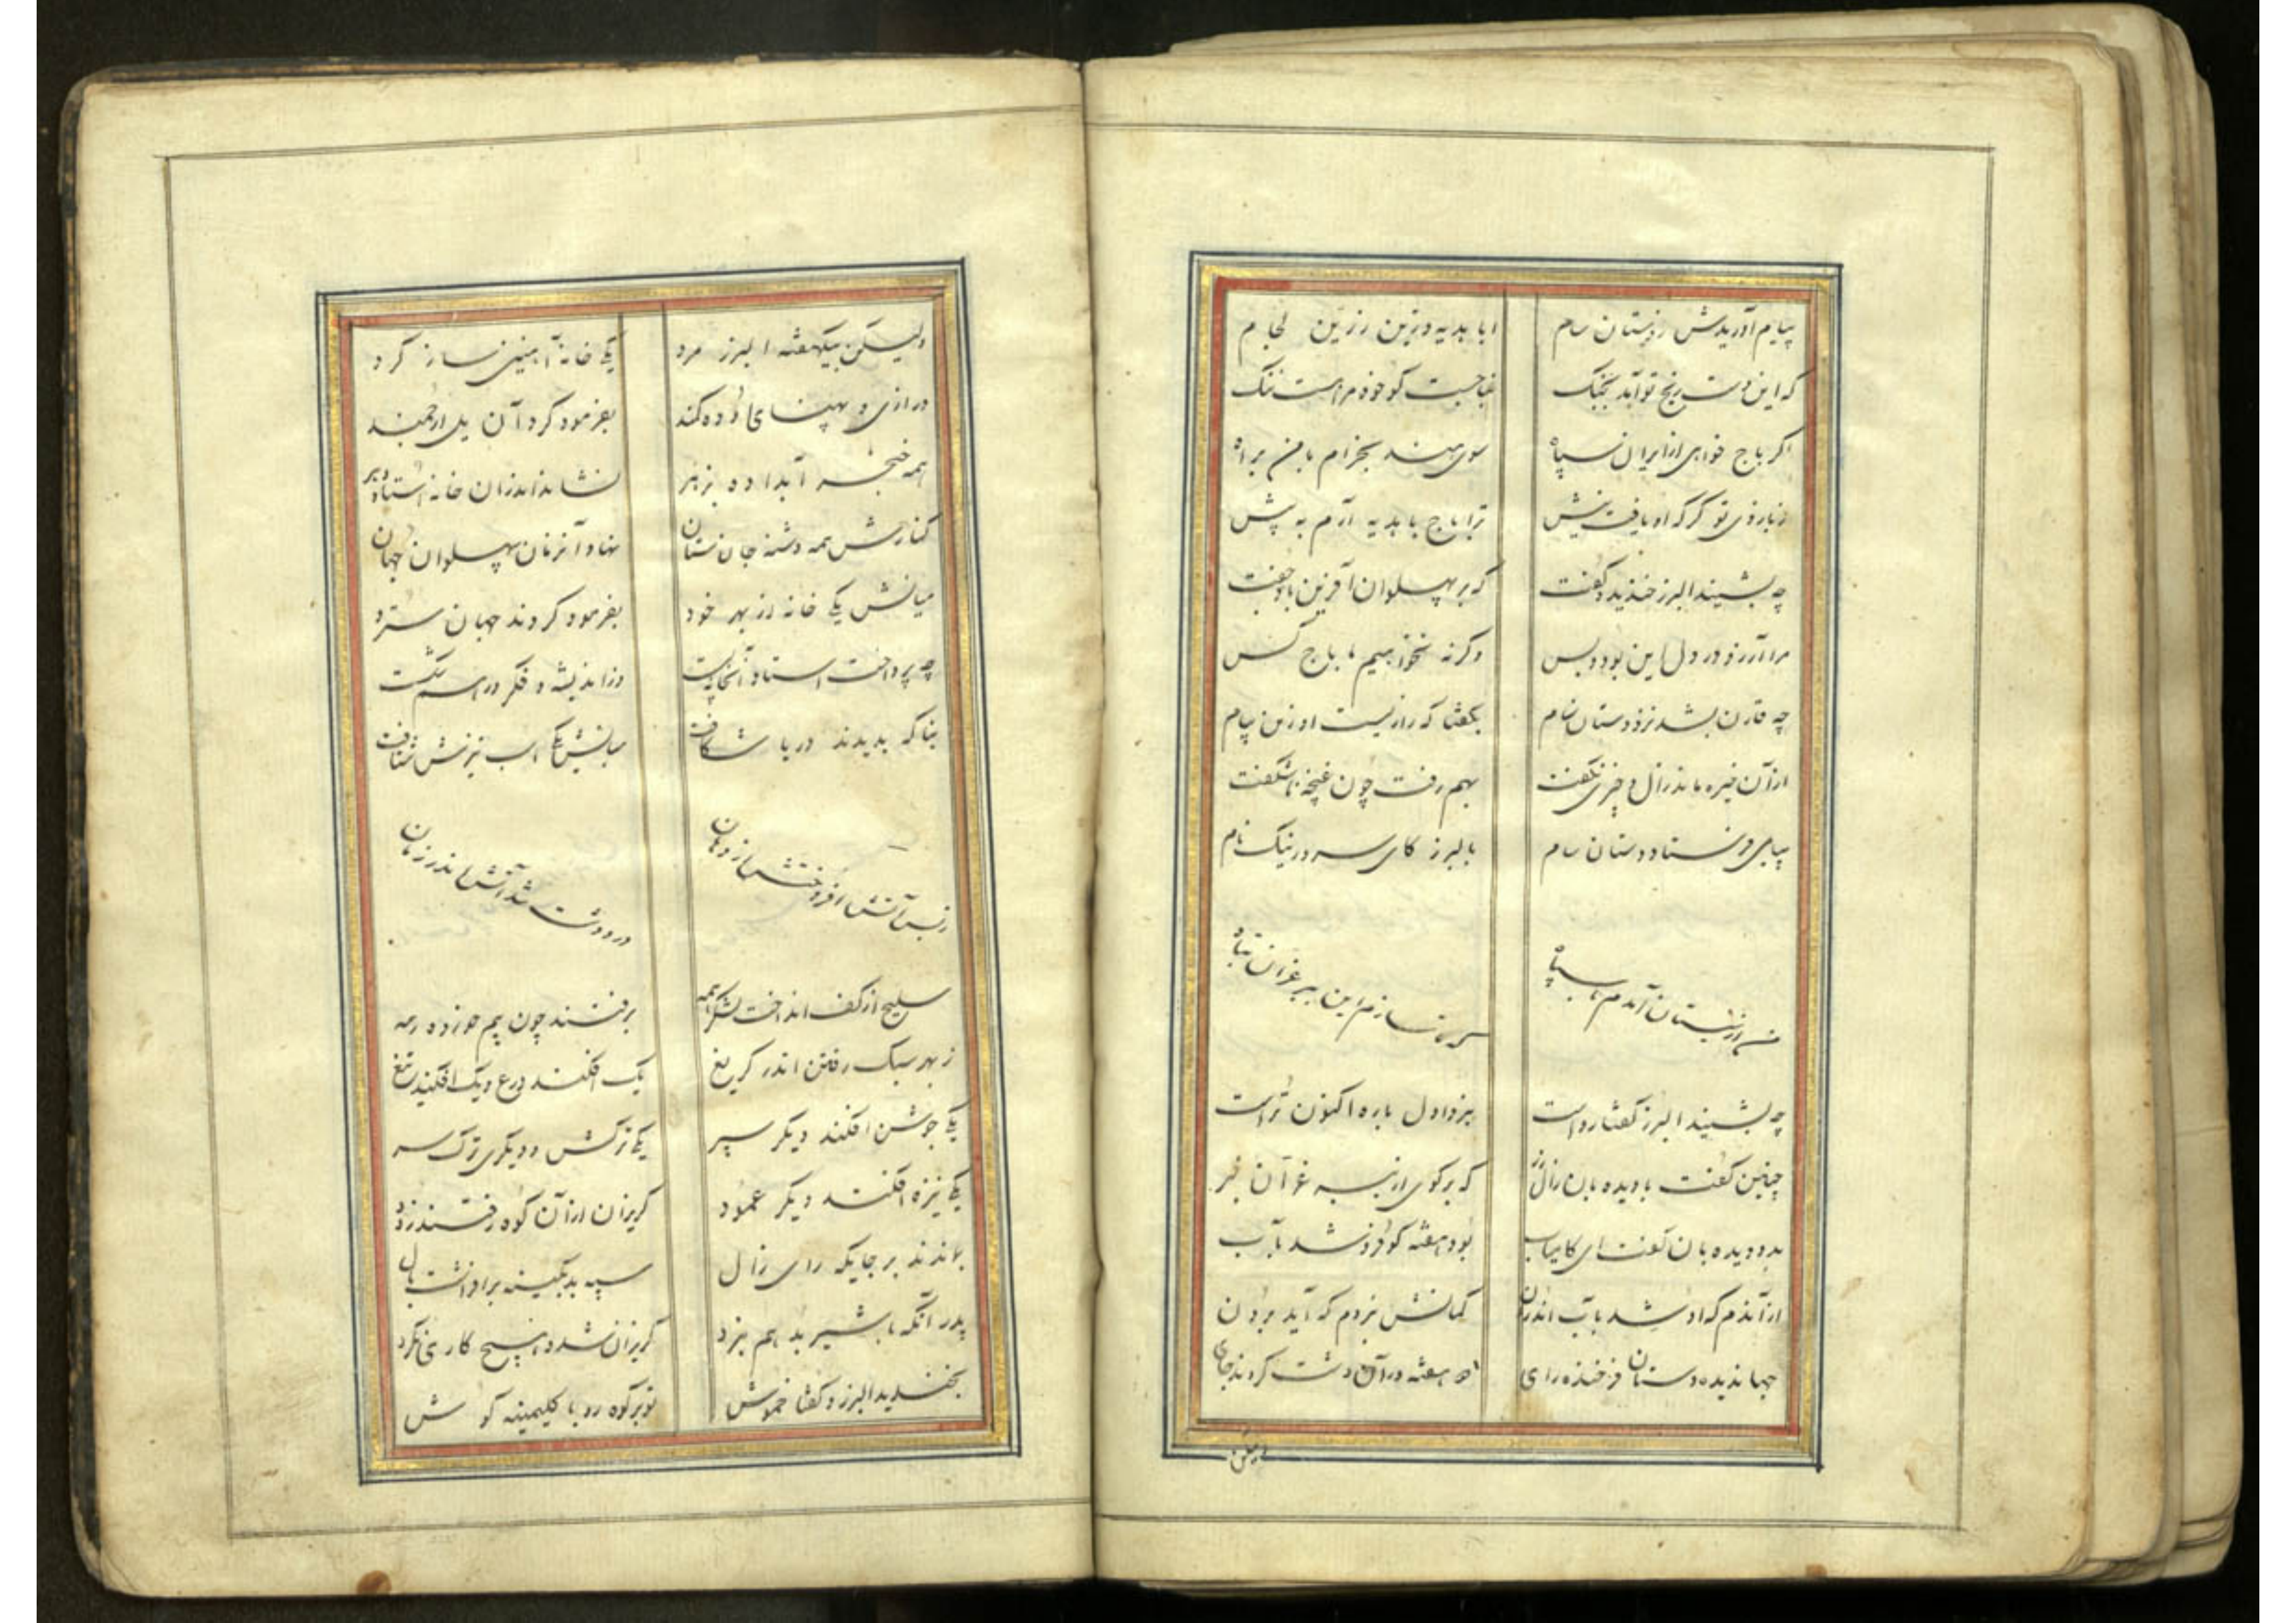 پیام آوریدش ز دستان سام ابا بدیه و زین زرین لجام
که این دست رنج تو آمد بجنگ
اگر باج خواهی از ایران سپاه سوی هند بخرام با من براه
ترا باج با بدیه آرم به پیش
چه بشنید البرز خندید و گفت که بر پهلوان آفرین باد جفت
مرا آرزو در دل این بود و بس وگرنه نخواهیم ما باج کس
چه قارن بشد نزد دستان سام بگفتا که راز نیست او زین پیام
از آن خیره ماند زال و چیزی نگفت بهم رفت چون غنچه ناشکفت
پیامی فرستاد دستان سام بالبرز کای سرور نیک نام
من از سیستان آمدم با سپاه که سازم این ببر غران تباه
چه بشنید البرز گفتا رواست نبرد اول باره اکنون تراست
چنین گفت با دیده بان زال زر که بر گوی از ببر غران خبر
بدو دیده بان گفت ای کامیاب بود هفته کو فرو شد بآب
از آندم که او شد بآب اندرون گمانش نبردم که آید برون
جهاندیده دستان فرخنده رای هفته در آن دشت کردند جای
ولیکن
ولیکن بیکهفته البرز مرد یکی خانه آهنین ساز کرد
درازی و پهنای ده کمند بفرمود کرد آن یل ارجمند
همه خنجر آبداده بزهر نشاند اندران خانه استاد
کنارش همه دشنه جان ستان نهاد آنزمان پهلوان جهان
میانش یکی خانه از بهر خود بفرمود کردند جهان
چه پرداخت استاد وز اندیشه و فکر
بناگه بدیدند دریا شکافت میانش یکی شتافت
ز بس آتش افروختش از دهان در و دشت شد آتش اندر زمان
سلیح از کف انداخت لشکر همه برفتند چون بیم خورده رمه
ز بهر سبک رفتن اندر گریغ یک افکند درع و یک افکند تیغ
یکی جوشن افکند دیگر سپر یکی ترکش و دیگری ترک سر
یکی نیزه افکند دیگر عمود گریزان از آن کوه رفتند زود
بماندند بر جایگه رای زال سپه
پدر آنگه با شیر بد هم نبرد گریزان شد و هیچ کاری نکرد
بخندید البرز و گفتا خموش تو بر کوه رو با کلیمینه گوش